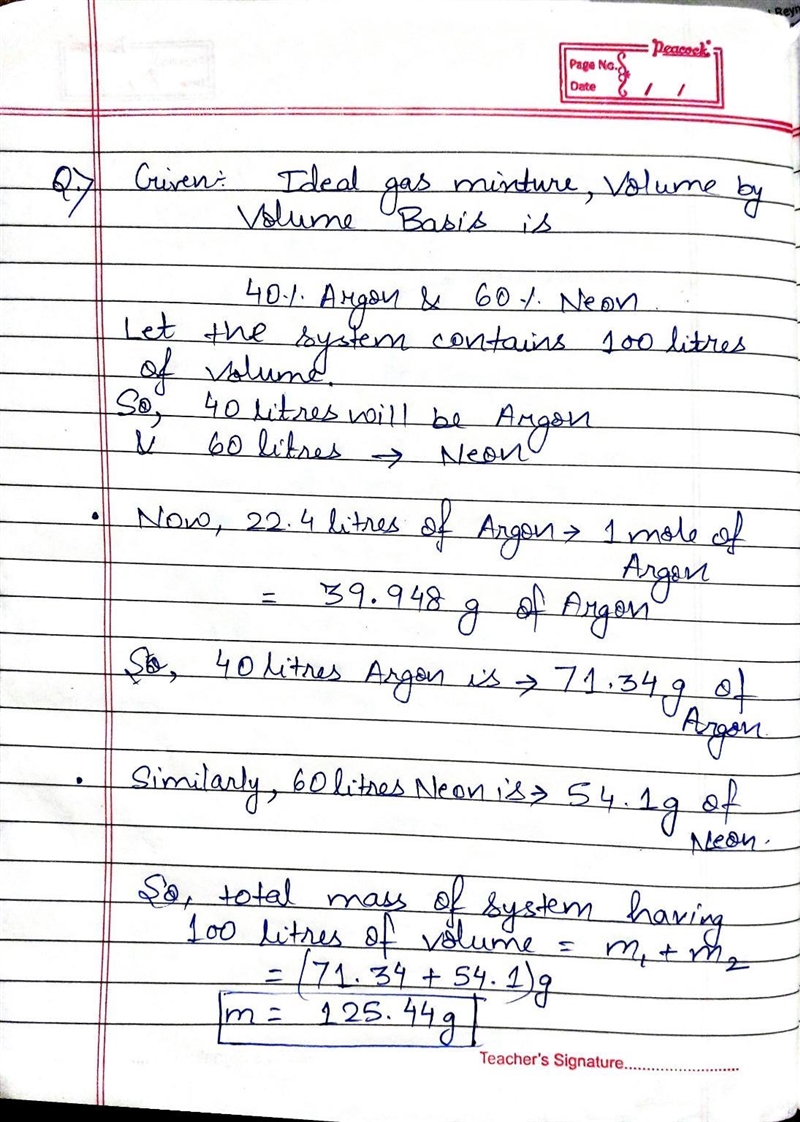 Reyn
Peacock
Page No.
Date / /
Q.) Given:- Ideal gas minture, Volume by
Volume Basis is
40% Argon & 60% Neon.
Let the system contains 100 litres
of volume.
So, 40 litres will be Argon
& 60 litres → Neon
• Now, 22.4 litres of Argon → 1 mole of
Argon
= 39.948 g of Argon
So, 40 litres Argon is → 71.34 g of
Argon.
• Similarly, 60 litres Neon is → 54.1 g of
Neon.
So, total mass of system having
100 litres of volume = m₁ + m₂
= (71.34 + 54.1) g
m = 125.44 g
Teacher's Signature..........................